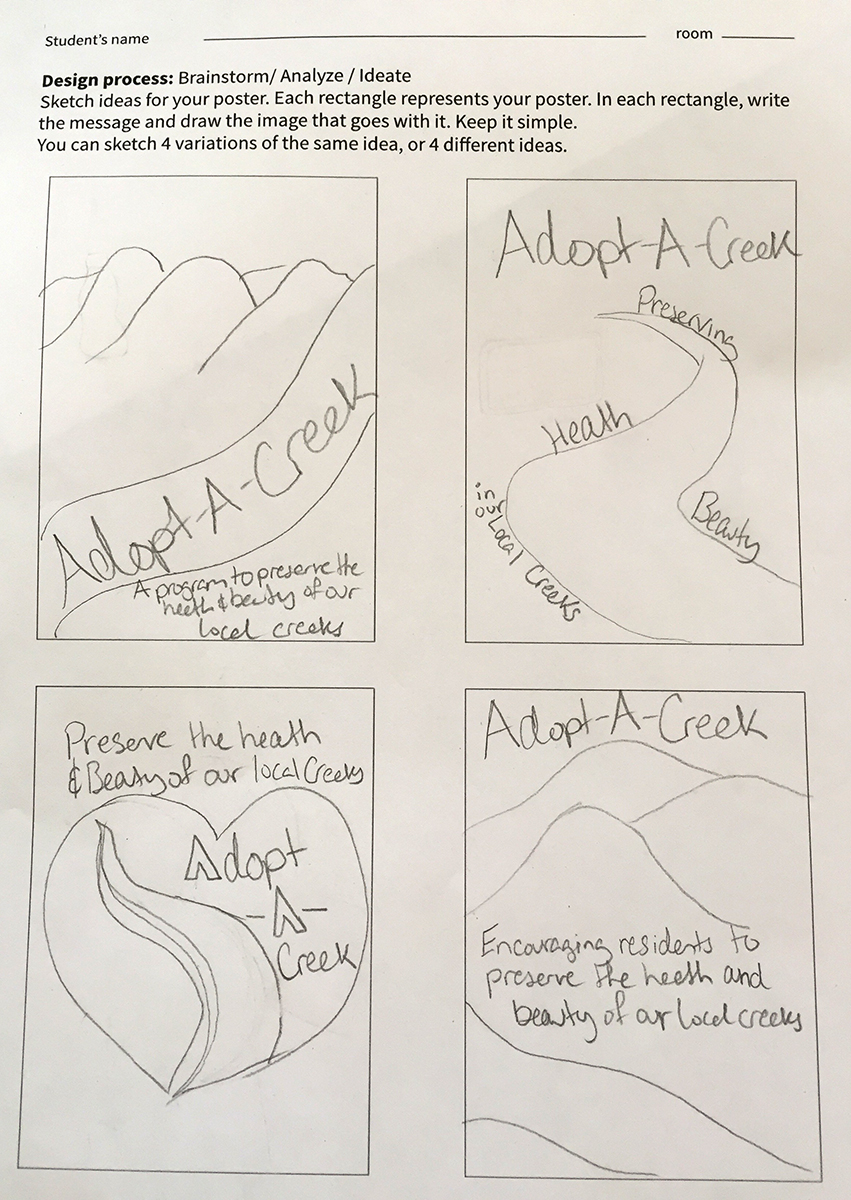 Student's name room
Design process: Brainstorm/ Analyze / Ideate
Sketch ideas for your poster. Each rectangle represents your poster. In each rectangle, write
the message and draw the image that goes with it. Keep it simple.
You can sketch 4 variations of the same idea, or 4 different ideas.
Adopt-A-Creek
A program to preserve the
heeth & beauty of our
local creeks
Adopt-A-Creek
Preserving
Heath
Beauty
in
our
Local Creeks
Preserve the heath
& Beauty of our local Creeks
Adopt
-A-
Creek
Adopt-A-Creek
Encouraging residents to
preserve the heeth and
beauty of our local creeks